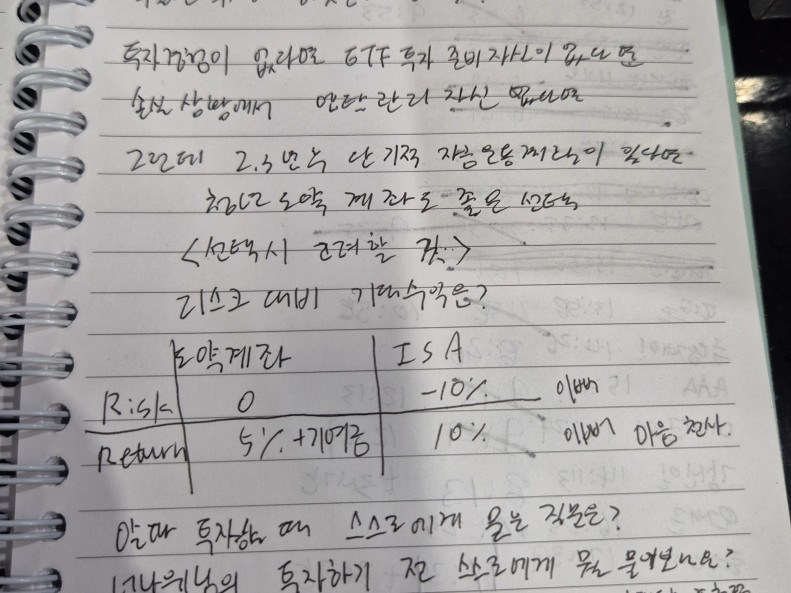 투자경험이 없다면 ETF 투자 준비자신이 없다면
손실 상황에서 멘탈관리 자신 없다면
그런데 2.3년뒤 단기적 자금운용계획이 있다면
청년도약계좌도 좋은 선택
<선택시 고려할 것>
리스크 대비 기대수익은?
도약계좌 ISA
Risk 0 -10% 이뻐
Return 5% +기여금 10% 이뻐 마음 천사.
알파 투자할 때 스스로에게 묻는 질문은?
너나위님의 투자하기 전 스스로에게 뭘 물어보나요?